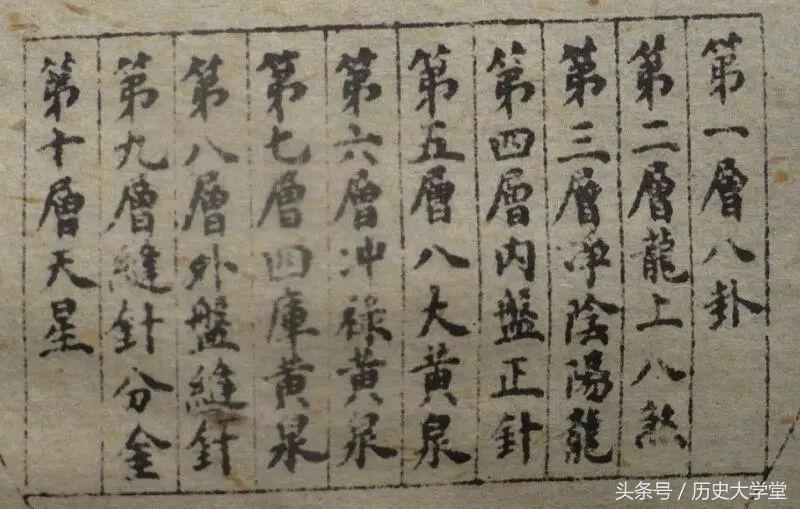 第一層八卦
第二層龍上八煞
第三層淨陰陽龍
第四層内盤正針
第五層八大黄泉
第六層冲祿黄泉
第七層四庫黄泉
第八層外盤縫針
第九層縫針分金
第十層天星
头条号 / 历史大学堂